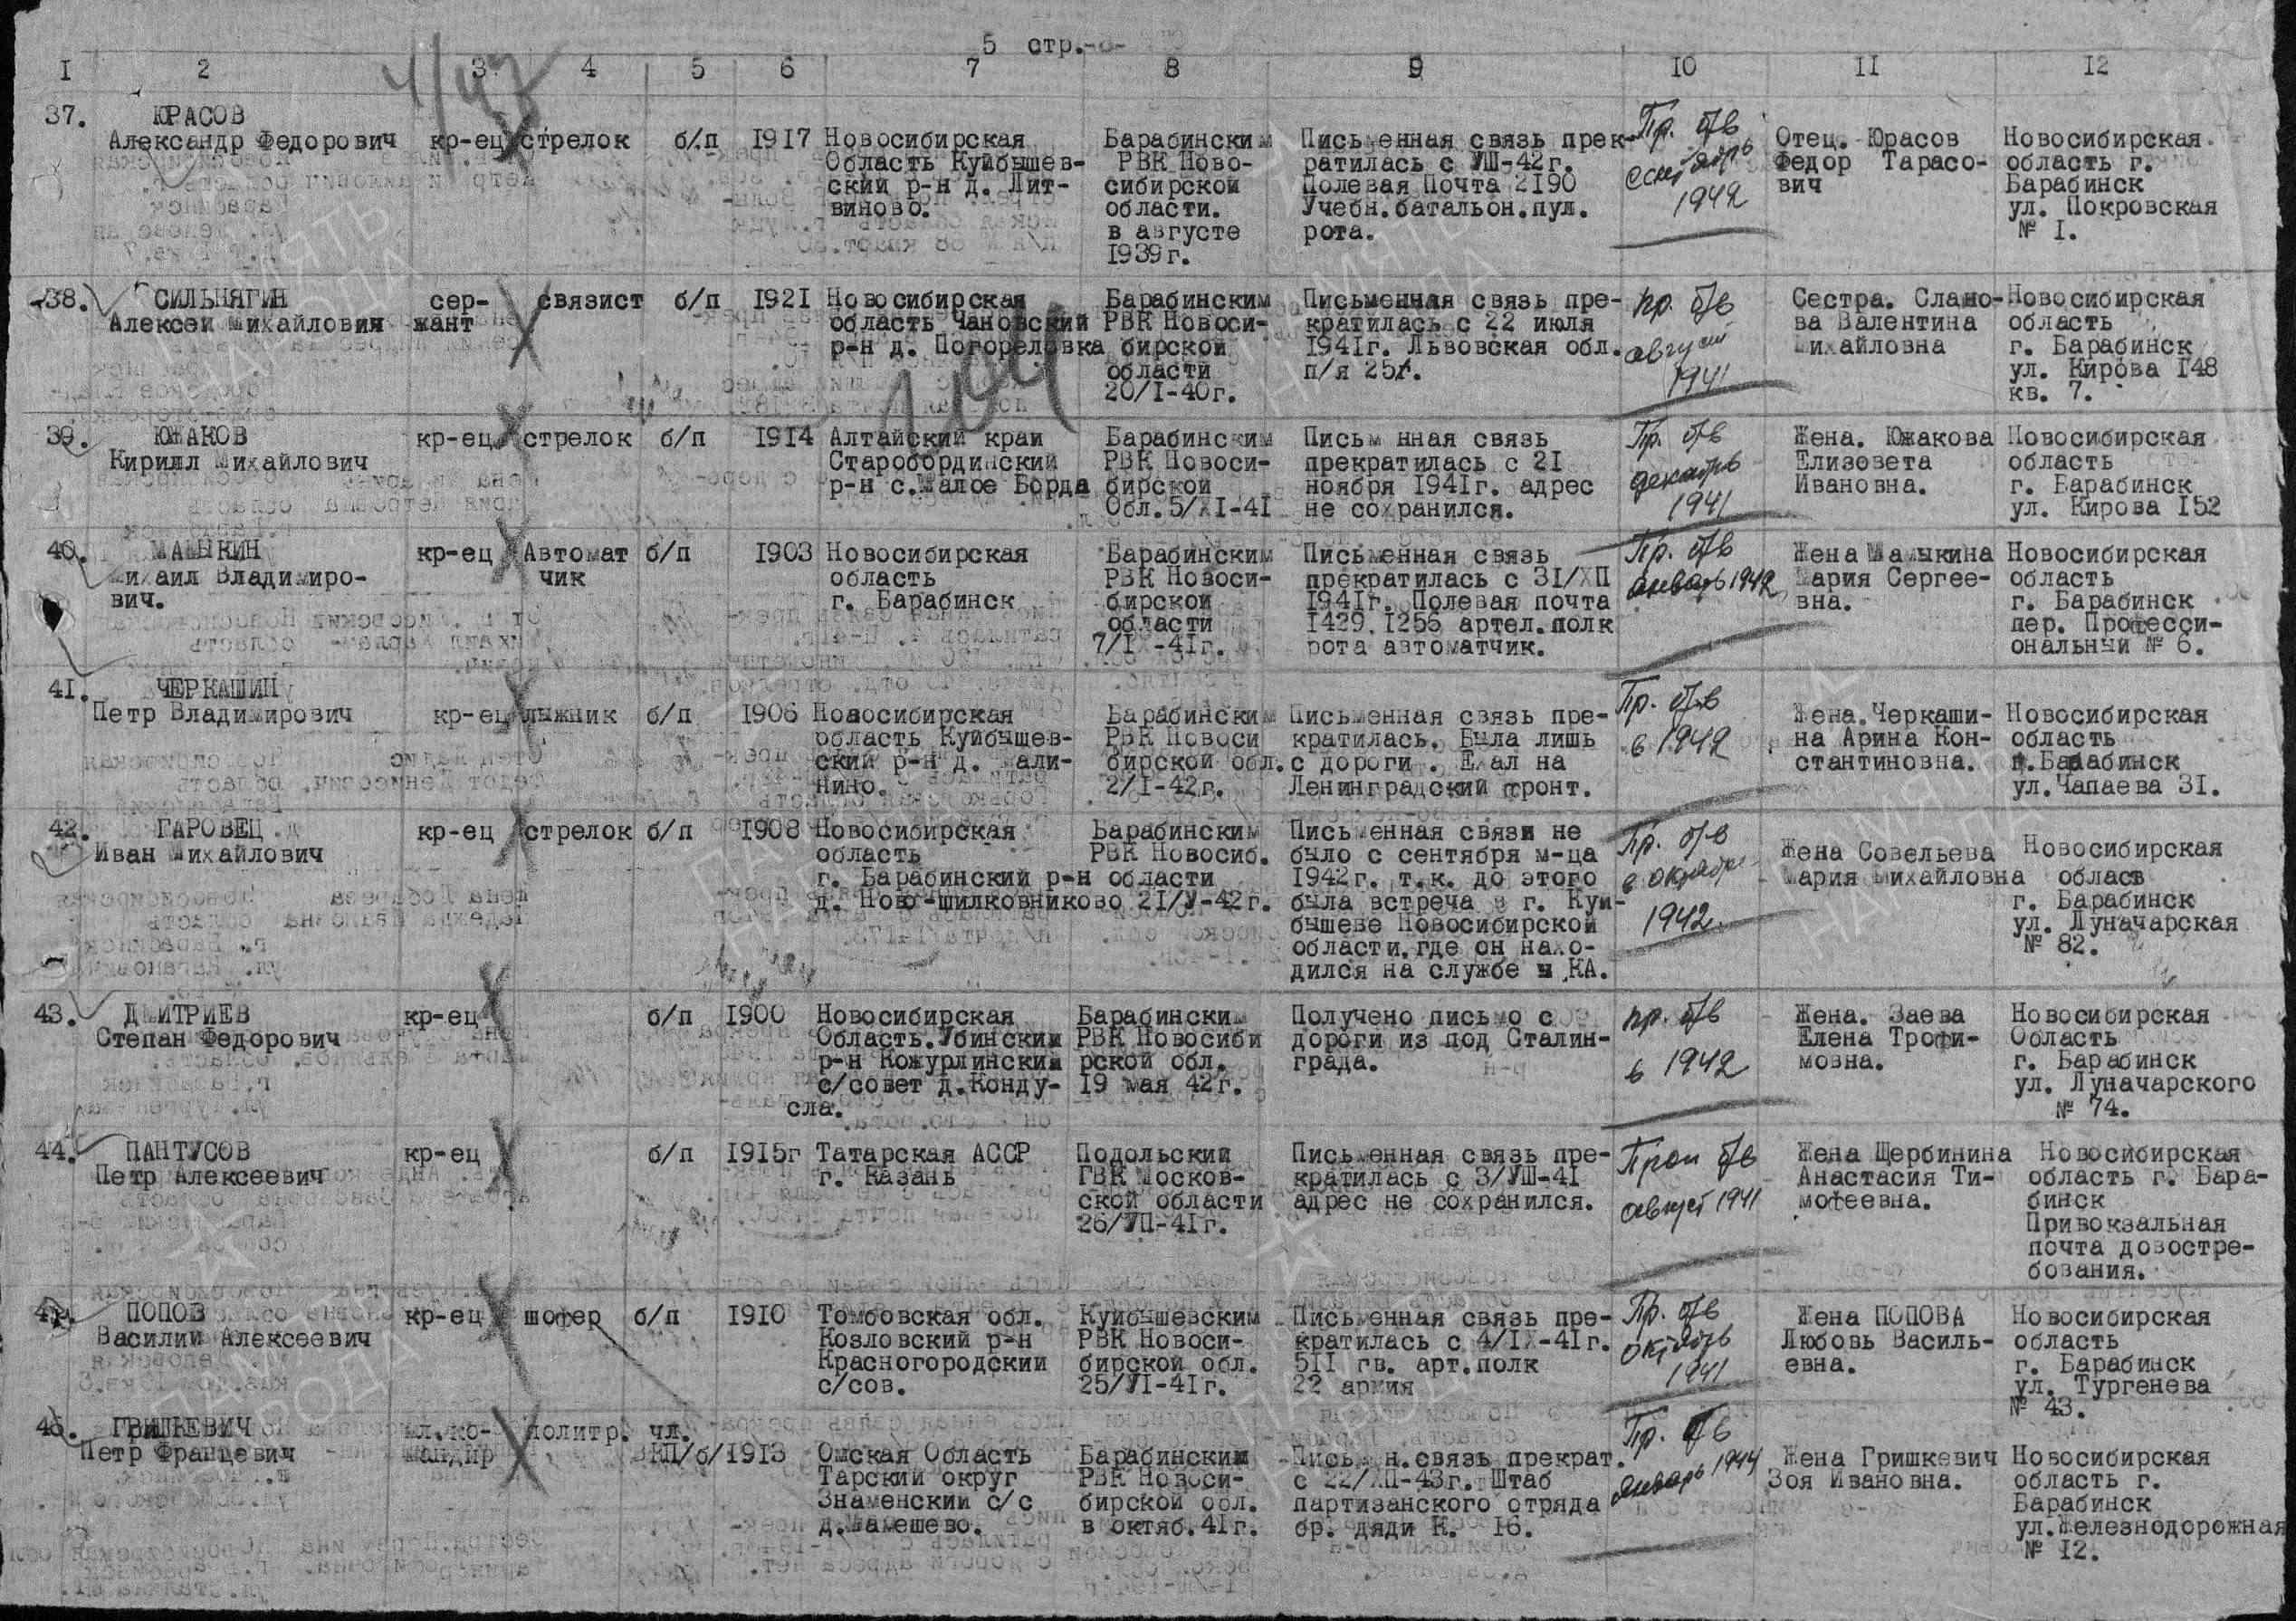 5 стр.
I 2 3 4 5 6 7 8 9 10 11 12
4/43
37. ЮРАСОВ
Александр Федорович кр-ец стрелок б/п 1917 Новосибирская
Область Куйбышев-
ский р-н д. Лит-
виново.
Барабинским
РВК Ново-
сибирской
области.
в августе
1939г.
Письменная связь прек-
ратилась с УШ-42г.
Полевая Почта 2190
Учебн.батальон.пул.
рота.
Пр. б/в
сентябрь
1942
Отец. Юрасов
Федор Тарасо-
вич
Новосибирская
область г.
Барабинск
ул. Покровская
№ I.
38. СИЛЬНЯГИН
Алексей Михайловия
сер-
жант
связист б/п 1921 Новосибирская
область Чановский
р-н д. Погореловка
Барабинским
РВК Новоси-
бирской
области
20/I-40г.
Письменная связь пре-
кратилась с 22 июля
1941г. Львовская обл.
п/я 25
пр. б/в
август
1941
Сестра. Слано-
ва Валентина
Михайловна
Новосибирская
область
г. Барабинск
ул. Кирова I48
кв. 7.
104
39. ЮЖАКОВ
Кирилл Михайлович
кр-ец стрелок б/п 1914 Алтайский край
Старобординский
р-н с.Малое Борда
Барабинским
РВК Новоси-
бирской
Обл.5/XI-41
Письм нная связь
прекратилась с 21
ноября 1941г. адрес
не сохранился.
Пр. б/в
декабрь
1941
Жена. Южакова
Елизовета
Ивановна.
Новосибирская
область
г. Барабинск
ул. Кирова I52
40. МАМЫКИН
Михаил Владимиро-
вич.
кр-ец Автомат
чик
б/п 1903 Новосибирская
область
г. Барабинск
Барабинским
РВК Новоси-
бирской
области
7/IX-41г.
Письменная связь
прекратилась с 31/ХП
1941г. Полевая почта
1429.1255 артел.полк
рота автоматчик.
Пр. б/в
январь 1942
Жена Мамыкина
Мария Сергее-
вна.
Новосибирская
область
г. Барабинск
пер. Професси-
ональный № 6.
41. ЧЕРКАШИН
Петр Владимирович
кр-ец лыжник б/п 1906 Новосибирская
область Куйбышев-
ский р-н д. Мали-
Нино.
Барабинским
РВК Новоси
бирской обл.
2/I-42г.
Письменная связь пре-
кратилась. Была лишь
с дороги . Ехал на
Ленинградский фронт.
Пр. б/в
в 1942
Жена.Черкаши-
на Арина Кон-
стантиновна.
Новосибирская
область
г.Барабинск
ул.Чапаева 31.
42. ГАРОВЕЦ
Иван Михайлович
кр-ец стрелок б/п 1908 Новосибирская
область
г. Барабинский р-н
д. Ново-шилковниково
Барабинским
РВК Новосиб.
области
21/У-42г.
Письменная связи не
было с сентября м-ца
1942г. т.к. до этого
была встреча в г. Куй-
бышеве Новосибирской
области.где он нахо-
дился на службе в КА.
Пр. б/в
в октябре
1942.
Жена Совельева
Мария Михайловна
Новосибирская
област
г. Барабинск
ул. Луначарская
№ 82.
43. ДМИТРИЕВ
Степан Федорович
кр-ец б/п 1900 Новосибирская
Область.Убинский
р-н Кожурлинский
с/совет д.Конду-
сла.
Барабинским
РВК Новосиби
рской обл.
19 мая 42г.
Получено письмо с
дороги из под Сталин-
града.
пр. б/в
в 1942
Жена. Заева
Елена Трофи-
мовна.
Новосибирская
Область
г. Барабинск
ул. Луначарского
№ 74.
44. ПАНТУСОВ
Петр Алексеевич
кр-ец б/п 1915г Татарская АССР
г. Казань
Подольский
ГВК Москов-
ской области
26/УП-41г.
Письменная связь пре-
кратилась с 3/УШ-41
адрес не сохранился.
Проп б/в
август 1941
Жена Щербинина
Анастасия Ти-
мофеевна.
Новосибирская
область г. Бара-
бинск
Привокзальная
почта довостре-
бования.
ПОПОВ
Василий Алексеевич
кр-ец шофер б/п 1910 Томбовская обл.
Козловский р-н
Красногородский
с/сов.
Куйбышевским
РВК Новоси-
бирской обл.
25/УI-41г.
Письменная связь пре-
кратилась с 4/IX-41г.
511 гв. арт.полк
22 армия
Пр. б/в
октябрь
1941
Жена ПОПОВА
Любовь Василь-
евна.
Новосибирская
область
г. Барабинск
ул. Тургенева
№ 43.
46. ГРИШКЕВИЧ
Петр Францевич
мл.ко-
мандир
политр. чл.
ВКП/б/ 1913 Омская Область
Тарский округ
Знаменский с/с
д.Мамешево.
Барабинским
РВК Новоси-
бирской обл.
в октяб.41г.
Письмен.связь прекрат.
с 22/ХП-43г. Штаб
партизанского отряда
бр. дяди К. 16.
Пр. б/в
январь 1944
Жена Гришкевич
Зоя Ивановна.
Новосибирская
область г.
Барабинск
ул.Железнодорожная
№ 12.
ПАМЯТЬ
НАРОДА